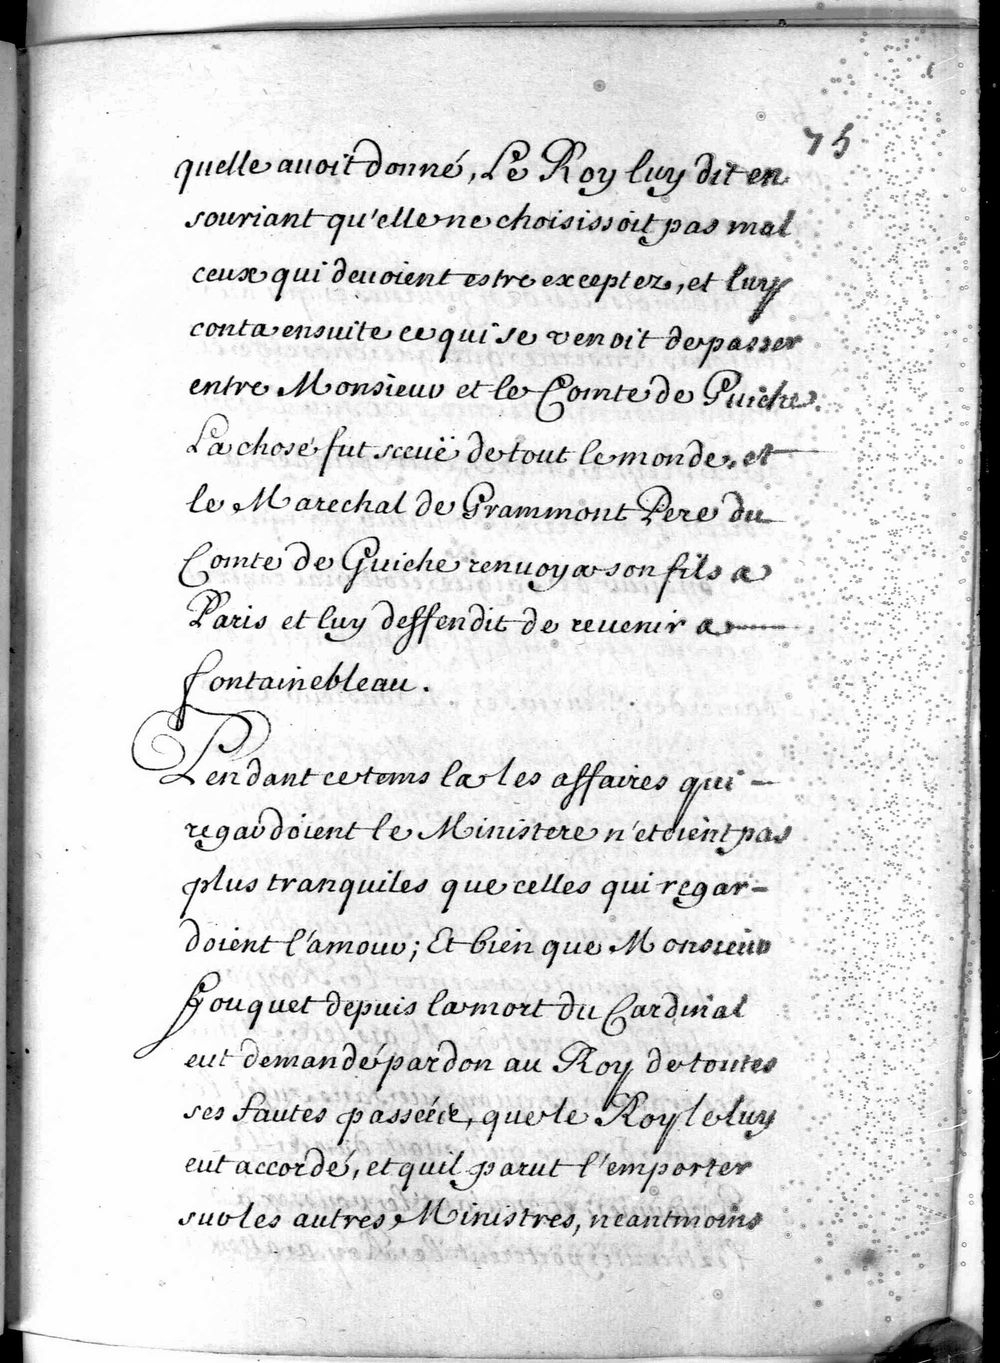 75
quelle avoit donné, Le Roy luy dit en
souriant qu'elle ne choisissoit pas mal
ceux qui devoient estre exceptez, et luy
conta ensuite ce qui se venoit de passer
entre Monsieur et le Comte de Guiche.
La chose fut sceuë de tout le monde, et
le Marechal de Grammont Pere du
Comte de Guiche renvoya son fils a
Paris et luy deffendit de revenir a
fontainebleau.
Pendant ce tems la les affaires qui
regardoient le Ministere n'etoient pas
plus tranquiles que celles qui regar-
doient l'amour; Et bien que Monsieur
Fouquet depuis la mort du Cardinal
eut demandé pardon au Roy de toutes
ses fautes passées, que le Roy le luy
eut accordé, et quil parut l'emporter
sur les autres Ministres, neantmoins